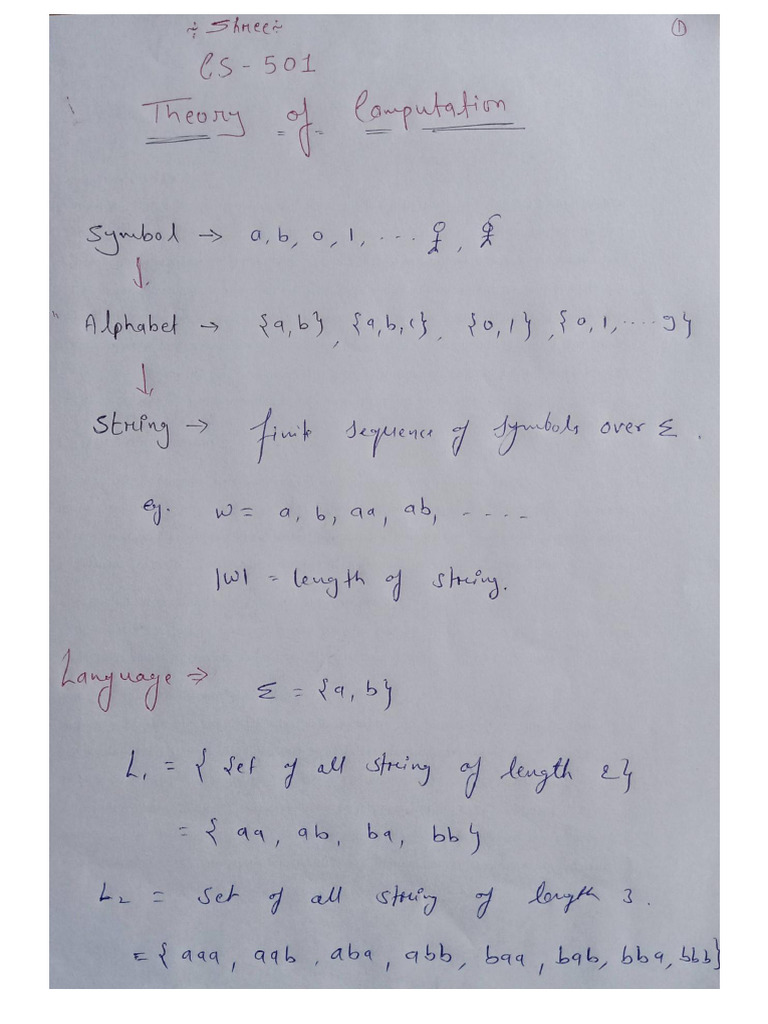 ÷ Shree ÷
①
CS-501
Theory of Computation
Symbol → a, b, 0, 1, ...
Alphabet → {a, b}, {a, b, c}, {0, 1}, {0, 1, .... 9}
String → finite sequence of symbols over Σ.
eg. w = a, b, aa, ab, ----
|w| = length of string.
Language ⇒ Σ = {a, b}
L₁ = { Set of all string of length 2}
= { aa, ab, ba, bb}
L₂ = Set of all string of length 3.
= { aaa, aab, aba, abb, baa, bab, bba, bbb}